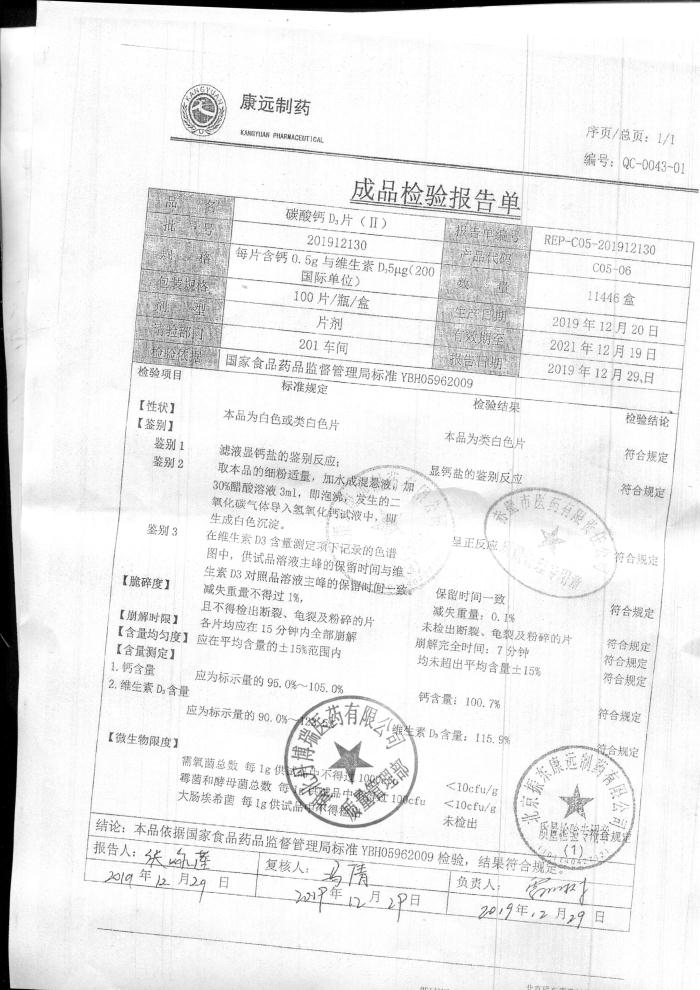 康远制药
KANGYUAN PHARMACEUTICAL
序页/总页：1/1
编号：QC-0043-01
成品检验报告单
品 名 碳酸钙D₃片（Ⅱ） 报告单编号 REP-C05-201912130
批 号 201912130 产品代码 C05-06
规 格 每片含钙0.5g与维生素D₃5μg(200国际单位) 数 量 11446盒
包装规格 100片/瓶/盒 生产日期 2019年12月20日
剂 型 片剂 有效期至 2021年12月19日
请验部门 201车间 报告日期 2019年12月29日
检验依据 国家食品药品监督管理局标准YBH05962009
检验项目 标准规定 检验结果 检验结论
【性状】 本品为白色或类白色片 本品为类白色片 符合规定
【鉴别】
鉴别1 滤液显钙盐的鉴别反应； 显钙盐的鉴别反应 符合规定
鉴别2 取本品的细粉适量，加水成混悬液，加
30%醋酸溶液3ml，即泡沸，发生的二
氧化碳气体导入氢氧化钙试液中，即
生成白色沉淀。 呈正反应 符合规定
鉴别3 在维生素D3含量测定项下记录的色谱
图中，供试品溶液主峰的保留时间与维
生素D3对照品溶液主峰的保留时间一致。 保留时间一致 符合规定
【脆碎度】 减失重量不得过1%， 减失重量：0.1%
且不得检出断裂、龟裂及粉碎的片 未检出断裂、龟裂及粉碎的片 符合规定
【崩解时限】 各片均应在15分钟内全部崩解 崩解完全时间：7分钟 符合规定
【含量均匀度】 应在平均含量的±15%范围内 均未超出平均含量±15% 符合规定
【含量测定】
1.钙含量 应为标示量的95.0%～105.0% 钙含量：100.7% 符合规定
2.维生素D₃含量 应为标示量的90.0%～ 维生素D₃含量：115.9% 符合规定
【微生物限度】
需氧菌总数 每1g供试品中不得过1000cfu <10cfu/g
霉菌和酵母菌总数 每1g供试品中不得过100cfu <10cfu/g
大肠埃希菌 每1g供试品中不得检出 未检出 符合规定
结论：本品依据国家食品药品监督管理局标准YBH05962009检验，结果符合规定。
报告人： 复核人：马倩 负责人：
2019年12月29日 2019年12月29日 2019年12月29日
博瑞医药有限公司
质量管理部
市医药有限责任公司
北京振东康远制药有限公司
质量检验专用章
(1)